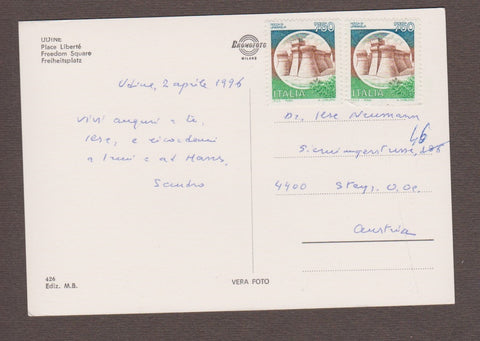 UDINE
Place Liberté
Freedom Square
Freiheitsplatz
BROMOFOTO
MILANO
750 750
ITALIA ITALIA
Udine, 2 aprile 1996
Vivi auguri a te,
Ilse, e ricordami
a Imi e ad Hans,
Sandro
Dr. Ilse Neumann
46
4400 Steyr, O.Oe.
Austria
426
Ediz. M.B.
VERA FOTO